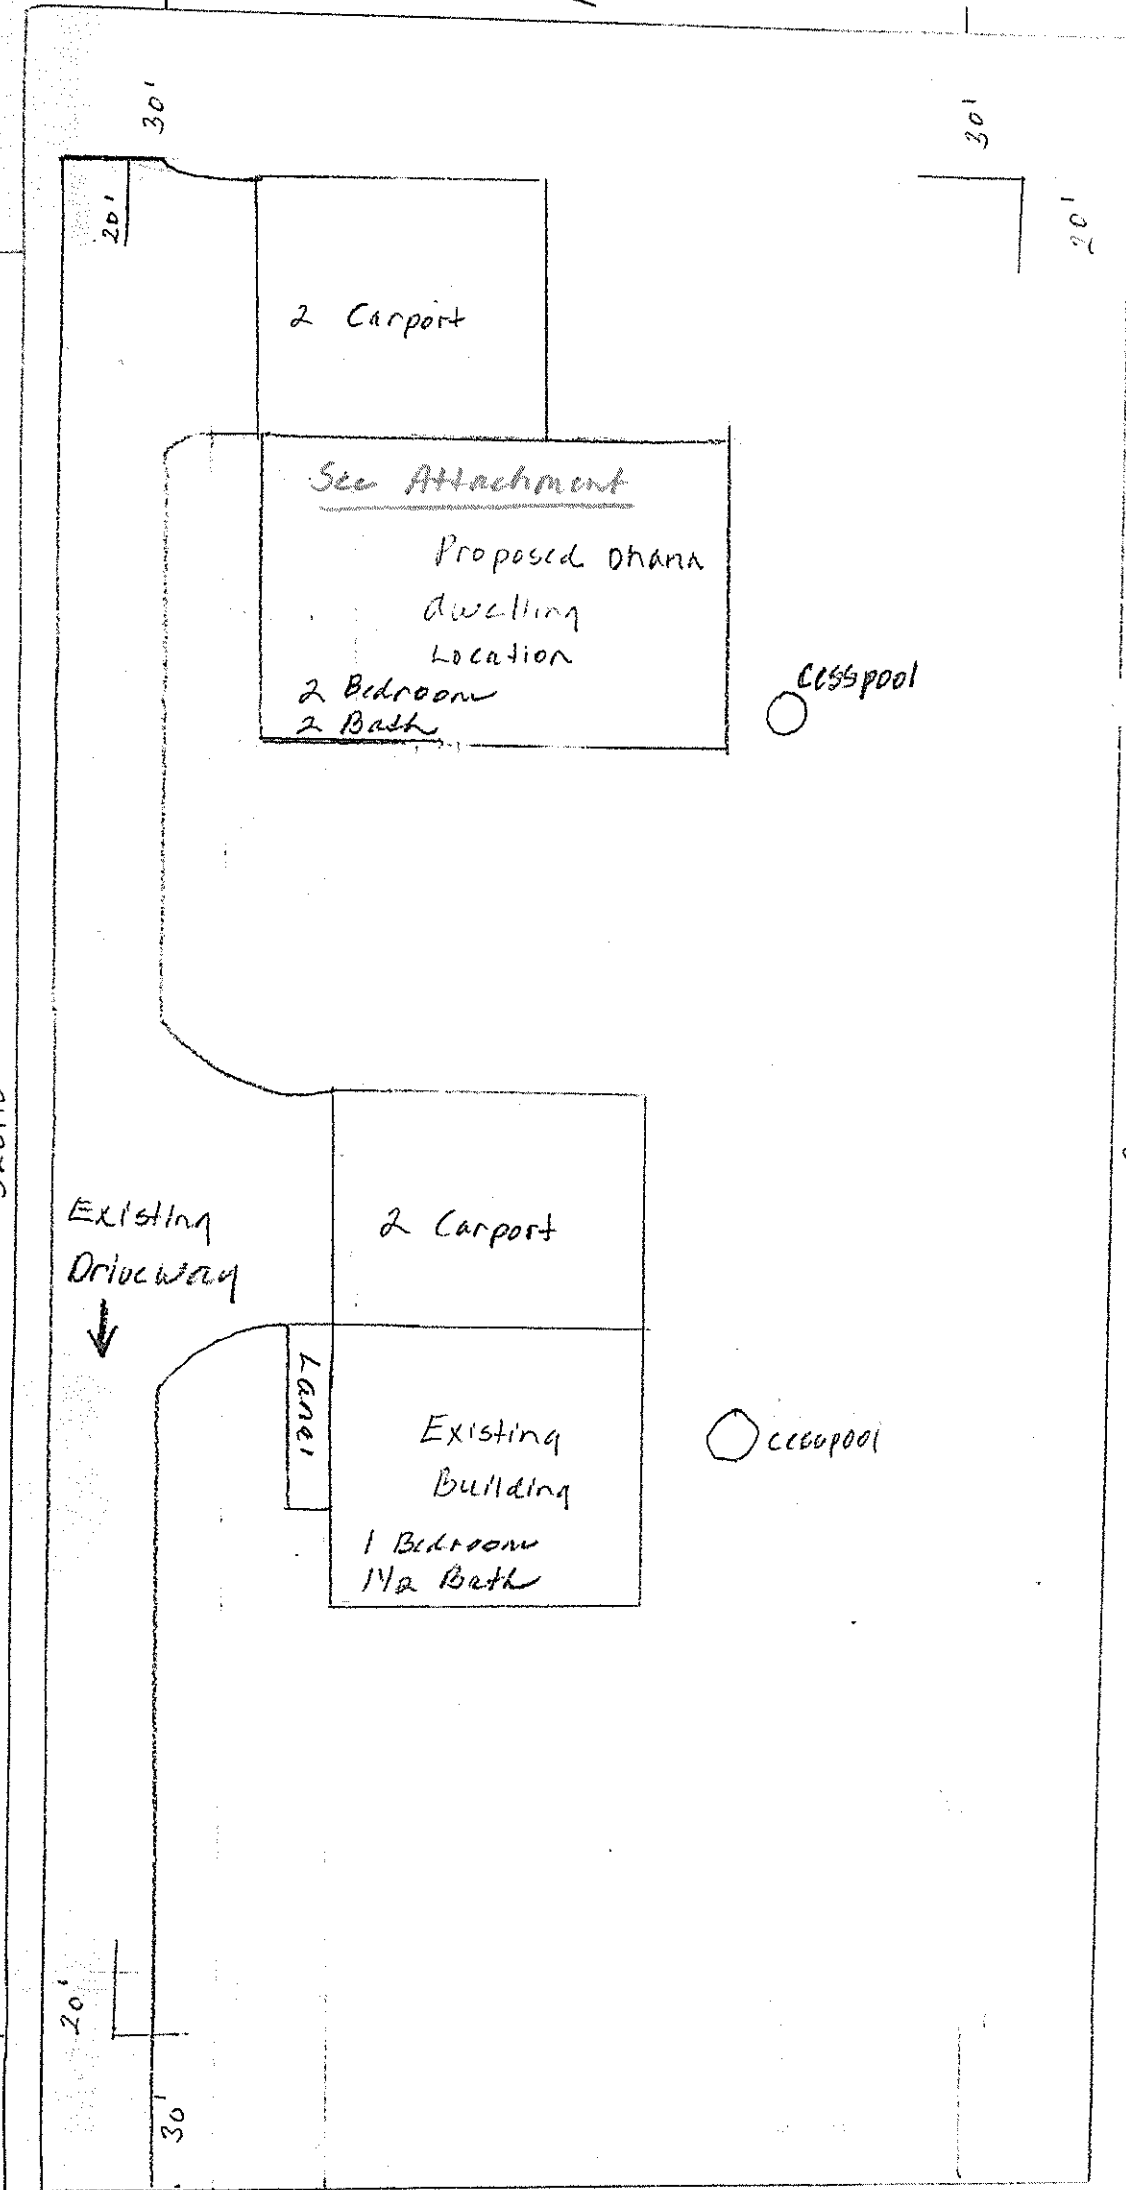 30'
30'
20'
20'
2 Carport
See Attachment
Proposed Ohana
dwelling
Location
2 Bedroom
2 Bath
cesspool
Existing
Driveway
2 Carport
Lanai
Existing
Building
1 Bedroom
1 1/2 Bath
cesspool
20'
30'